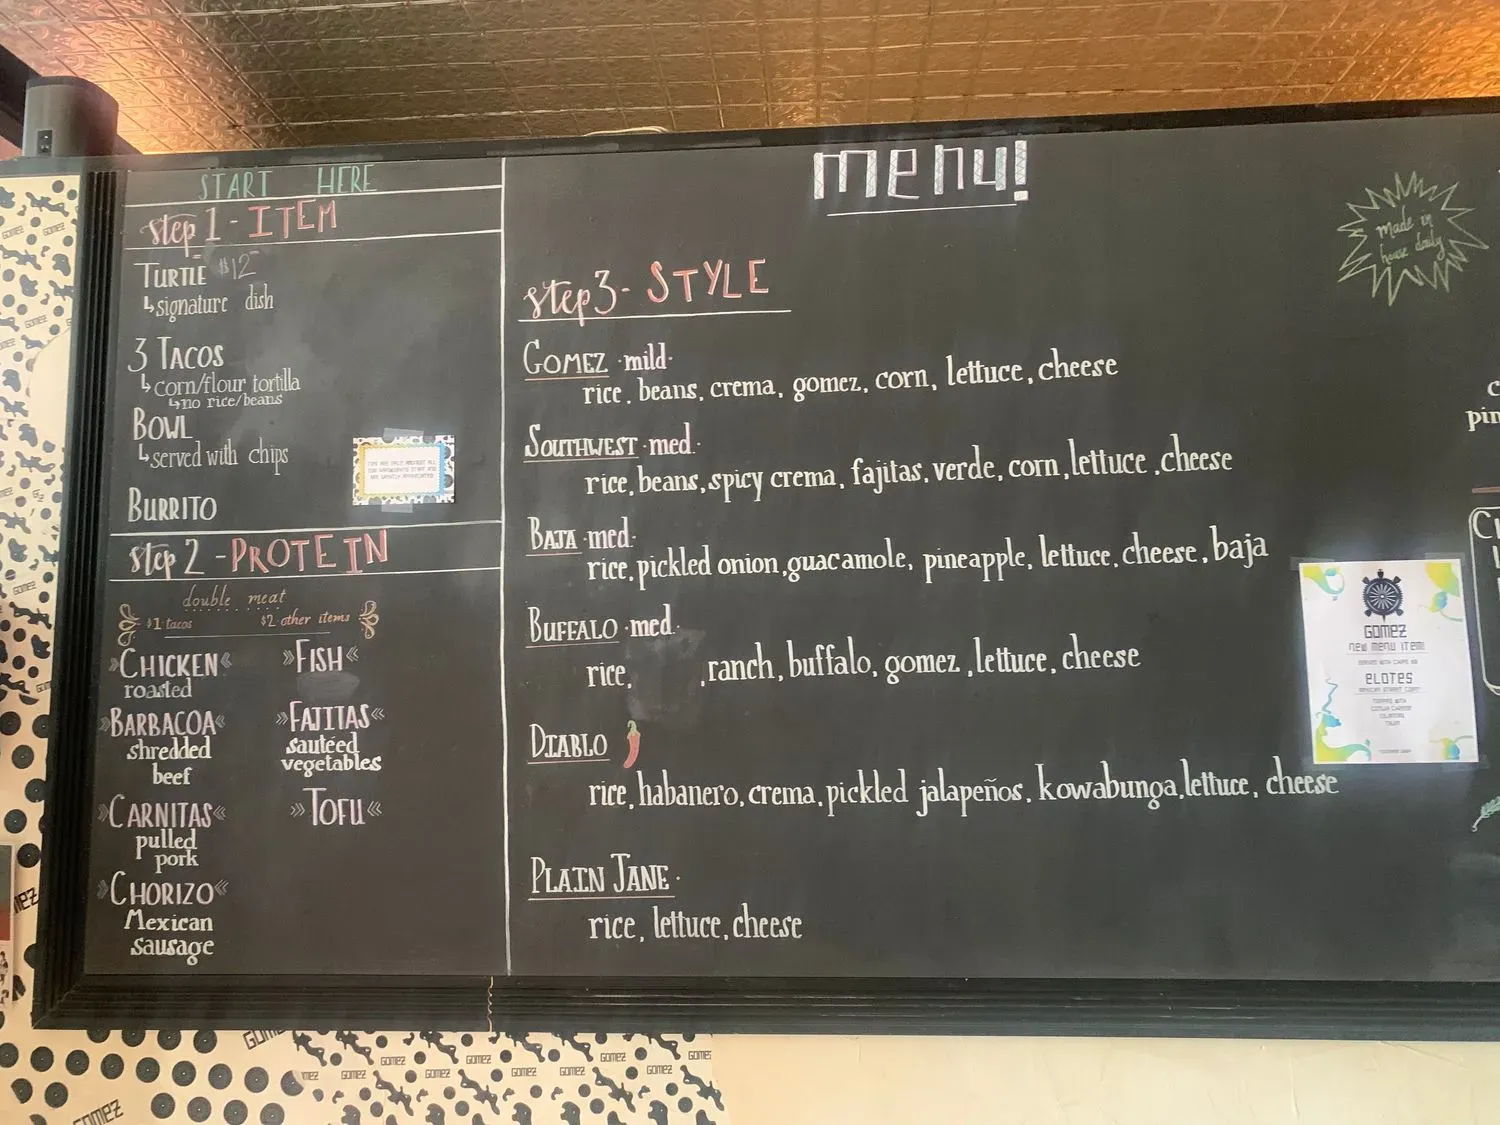 START HERE
step 1 - ITEM
TURTLE $12
↳signature dish
3 TACOS
↳corn/flour tortilla
↳no rice/beans
BOWL
↳served with chips
BURRITO
step 2 - PROTEIN
double meat
$1-tacos $2-other items
»CHICKEN«
roasted
»BARBACOA«
shredded
beef
»CARNITAS«
pulled
pork
»CHORIZO«
Mexican
sausage
»FISH«
»FAJITAS«
sautéed
vegetables
»TOFU«
menu!
step 3 - STYLE
GOMEZ ·mild·
rice, beans, crema, gomez, corn, lettuce, cheese
SOUTHWEST ·med·
rice, beans, spicy crema, fajitas, verde, corn, lettuce, cheese
BAJA ·med·
rice, pickled onion, guacamole, pineapple, lettuce, cheese, baja
BUFFALO ·med·
rice, , ranch, buffalo, gomez, lettuce, cheese
DIABLO
rice, habanero, crema, pickled jalapeños, kowabunga, lettuce, cheese
PLAIN JANE ·
rice, lettuce, cheese
made in
house daily
GOMEZ
new menu item!
SERVED WITH CHIPS
eLOTES
MEXICAN STREET CORN
TOPPED WITH
COTIJA CHEESE
CILANTRO
TAJIN
pin
GOMEZ